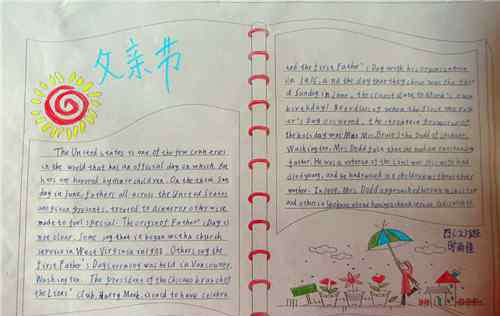 父亲节
The United States is one of the few countries
in the world that has an official day on which fat
hers are honored by their children. On the third Sun
day in June, fathers all across the United States
are given presents, treated to dinner or otherwise
made to feel special. The origin of Father's Day is
not clear. Some say that it began with a church
service in West Virginia in 1908. Others say the
first Father's Day ceremony was held in Vancouver,
Washington. The president of the Chicago branch of
the Lions' Club, Harry Meek, is said to have celebra
ted the first Father's Day with his organization
in 1915, and the day that they chose was the thir
d Sunday in June, the closest date to Meek's own
birthday! Regardless of when the first
Day occurred, the strongest promoter of
the holiday was Mrs. Bruce John Dodd of Spokane,
Washington. Mrs. Dodd felt that she had an outstanding
father. He was a veteran of the Civil War. His wife had
died young, and he had raised six children without their
mother. In 1909, Mrs. Dodd approached her own minister
and others in Spokane about having a church service dedicated to